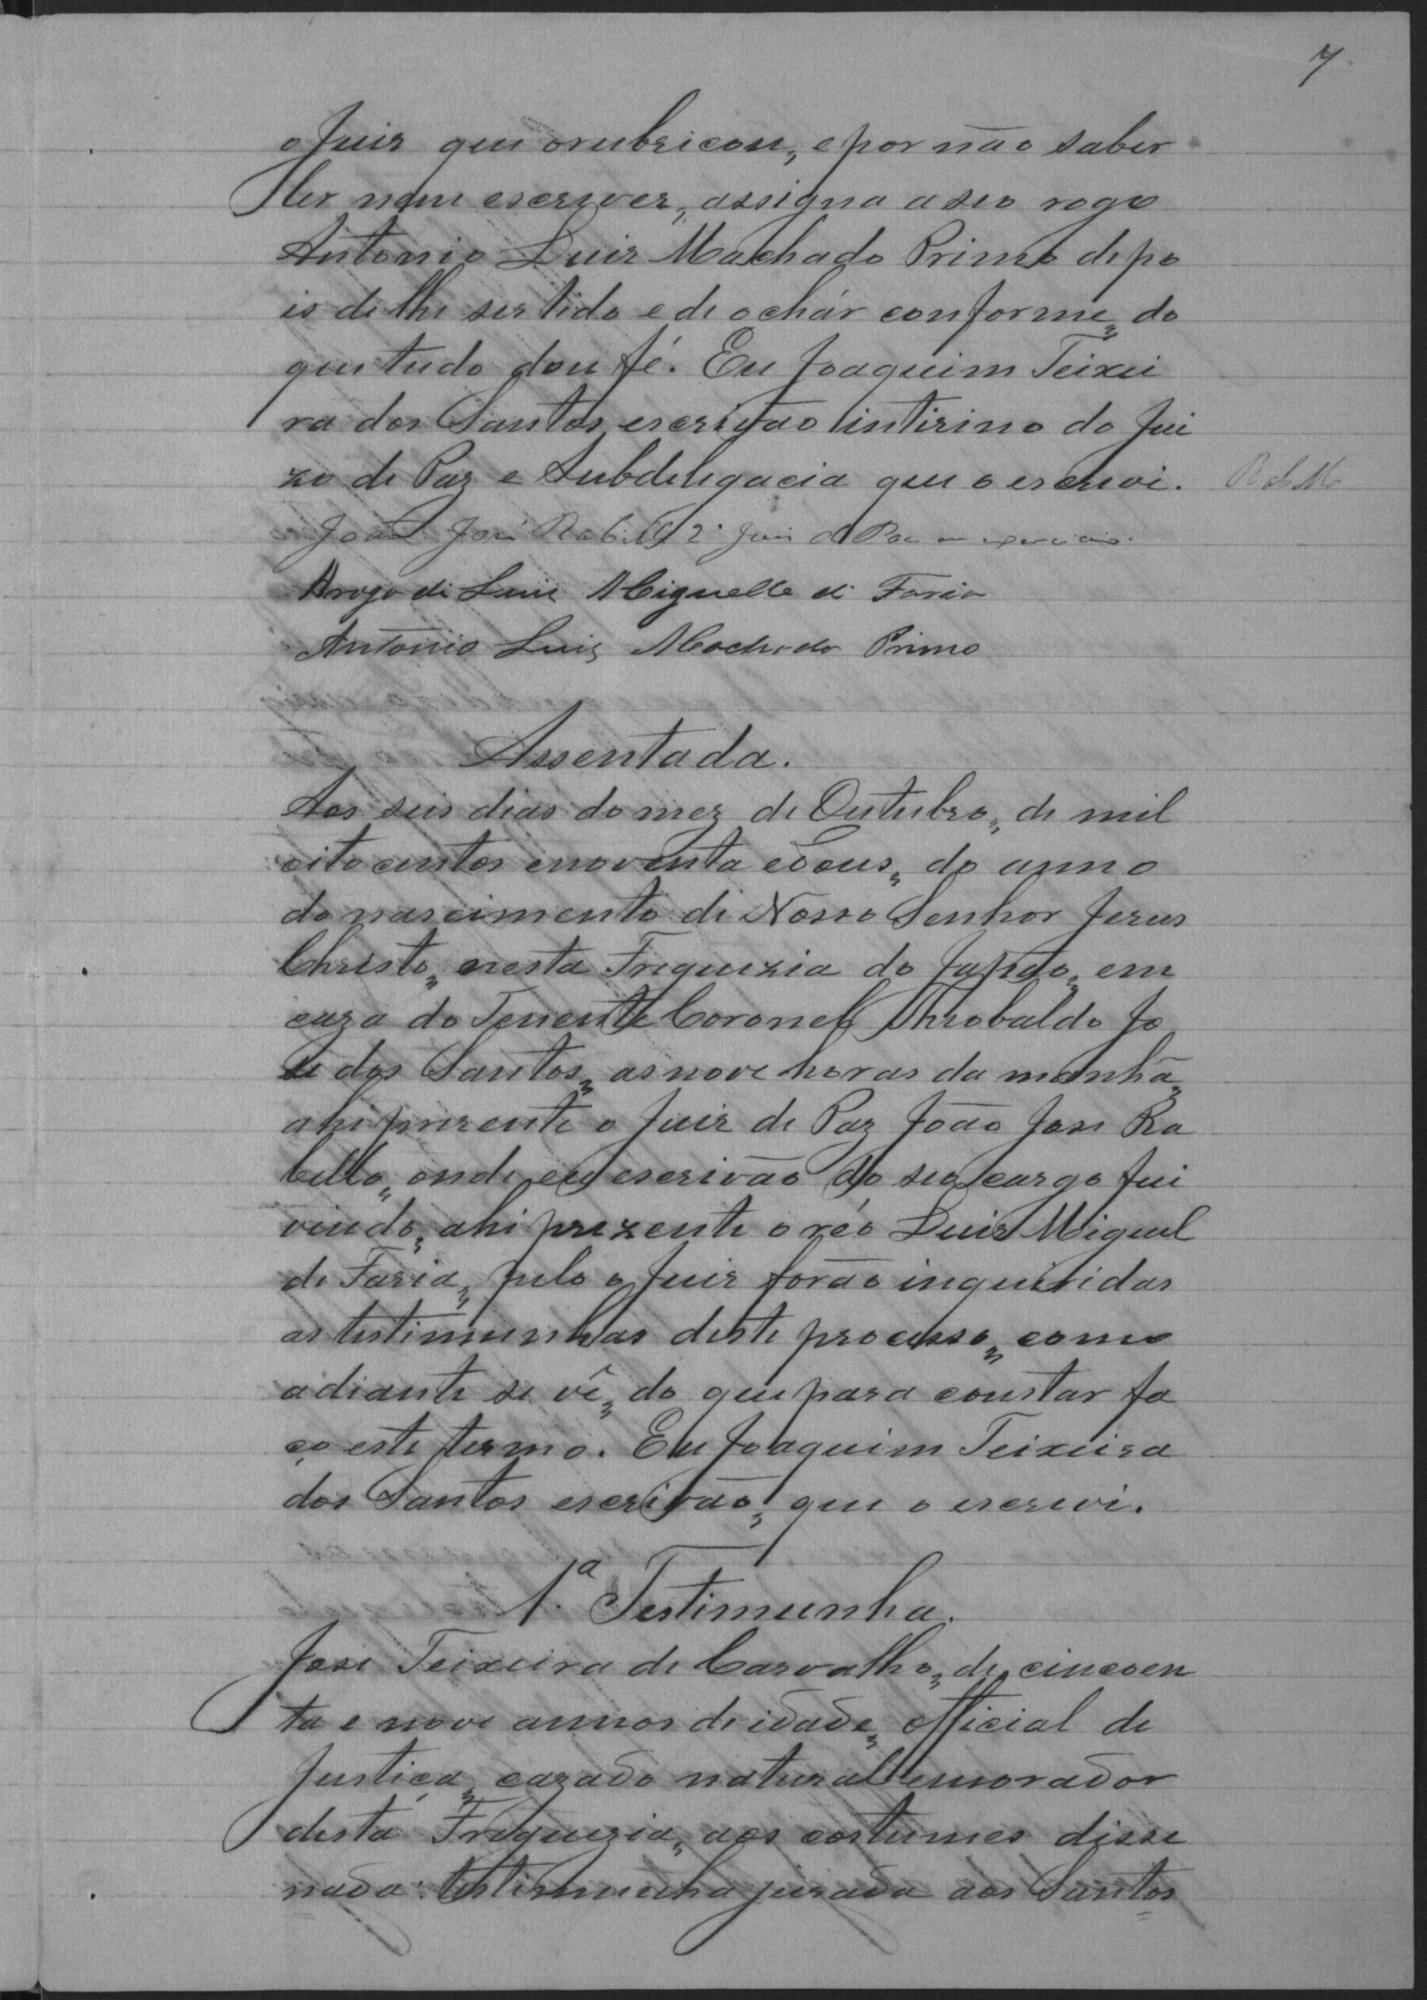 7
o Juiz que orubricou, e por não saber
ler nem escrever, assigna a seo rogo
Antonio Luiz Machado Primo depo
is de lhe ser lido e de o chár conforme, do
que tudo dou fé. Eu Joaquim Teixei
ra dos Santos escrivão intirino do Jui
zo de Paz e Subdelegacia que o escrevi.
João José Rabello 2º Juiz de Paz em exercicio.
Arogo di Luiz Miguelle di Faria
Antonio Luiz Machado Primo
Assentada.
Aos seis dias do mez de Outubro, de mil
oito centos enoventa e , do anno
do nascimento de Nosso Senhor Jesus
Christo, nesta Freguezia do , em
caza do Tenente Coronel Throbaldo Jo
se dos Santos, as nove horas da manhã,
ahi prezente o Juiz de Paz João Jose Ra
bello, onde eu escrivão do seo cargo fui
vindo, ahi prezente o réo Luiz Miguel
de Faria, pelo o Juiz forão inqueridas
as testimunhas deste processo, como
adiante se vê, do que para constar fa
ço este termo. Eu Joaquim Teixeira
dos Santos escrivão, que o escrevi.
1ª Testimunha.
Jose Teixeira de Carvalho, de cincoen
ta e nove annos de idade, official de
Justiça, cazado natural emorador
desta Freguezia, aos costumes disse
nada. testimunha jurada aos Santos